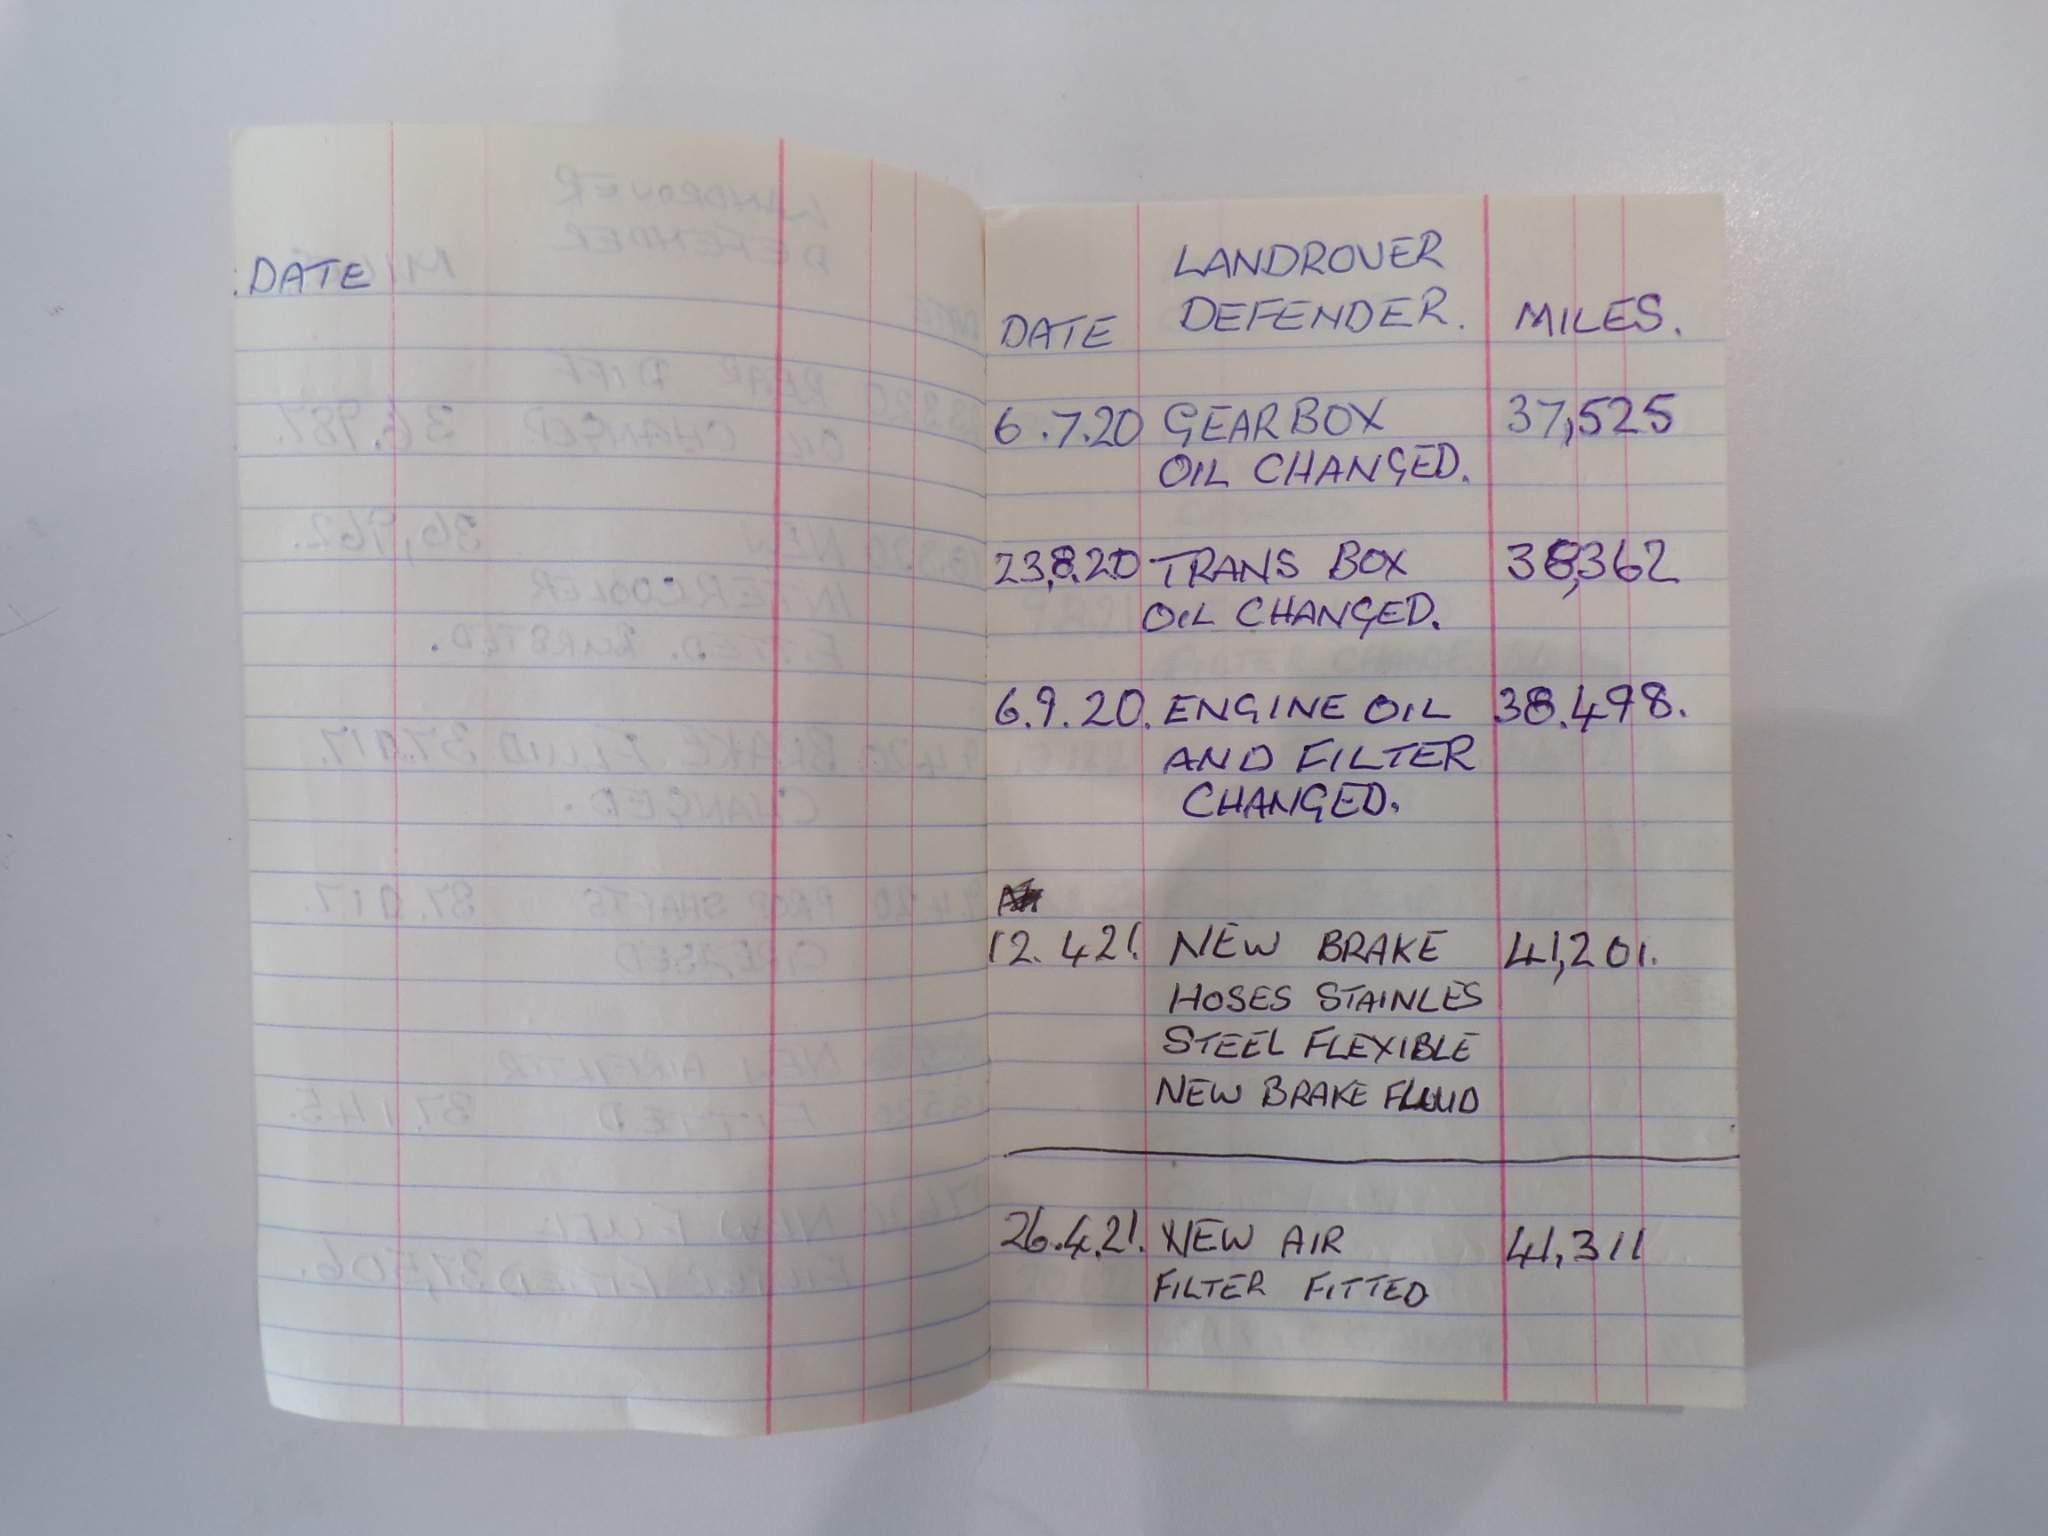 DATE
LANDROVER
DEFENDER.
DATE
MILES.
6.7.20 GEARBOX 37,525
OIL CHANGED.
23,8.20 TRANS BOX 38,362
OIL CHANGED.
6.9.20. ENGINE OIL 38.498.
AND FILTER
CHANGED.
12.421. NEW BRAKE 41,201.
HOSES STAINLES
STEEL FLEXIBLE
NEW BRAKE FLUID
26.4.21. NEW AIR 41,311
FILTER FITTED